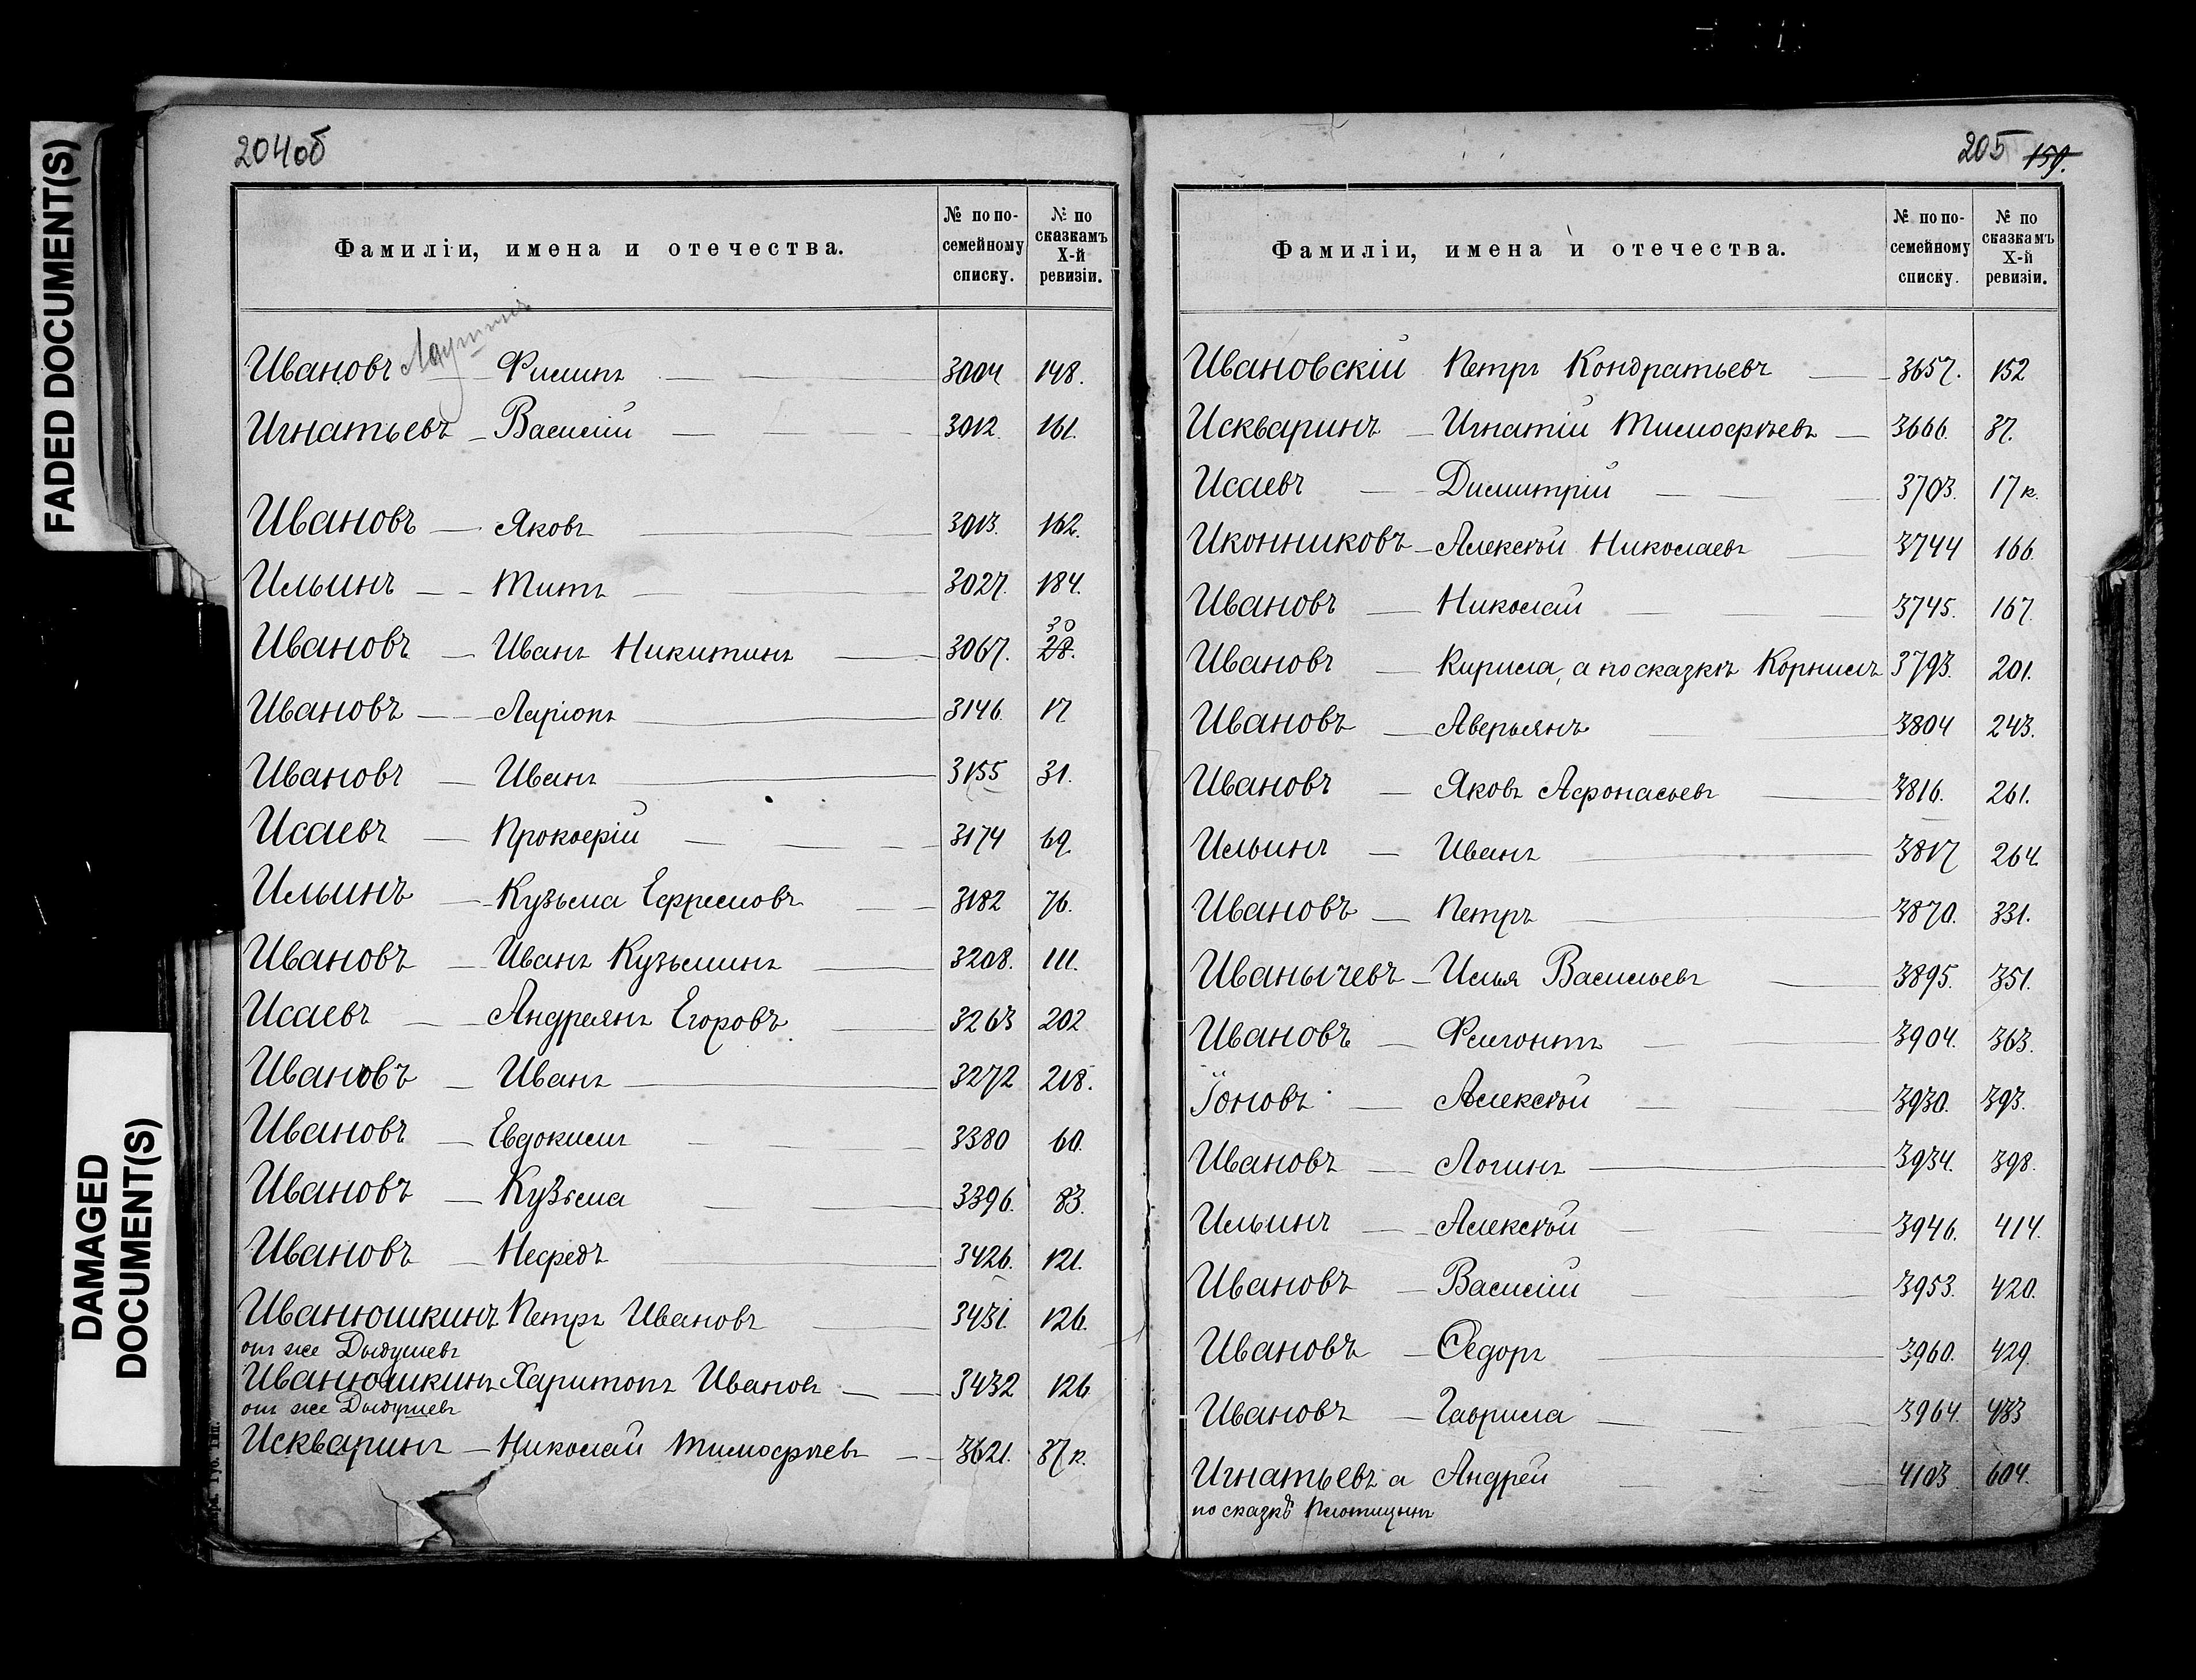 FADED DOCUMENT(S)
DAMAGED
DOCUMENT(S)
204об
Фамиліи, имена и отечества.
№ по по-
семейному
списку.
№ по
сказкамъ
X-й
ревизіи.
Ивановъ — Филипъ 3004 148.
Игнатьевъ — Василій 3012. 161.
Ивановъ — Яковъ 3013. 162.
Ильинъ — Титъ 3027. 184.
30
Ивановъ — Иванъ Никитинъ 3067. 28.
Ивановъ — Ларіонъ 3146. 17
Ивановъ — Иванъ 3155 31.
Исаевъ — Прокофій 3174 69.
Ильинъ — Кузьма Ефремовъ 3182 76.
Ивановъ — Иванъ Кузьминъ 3208. 111.
Исаевъ — Андреянъ Егоровъ 3263 202
Ивановъ — Иванъ 3272 218.
Ивановъ — Евдокимъ 3380 60.
Ивановъ — Кузьма 3396. 83.
Ивановъ — Нефедъ 3426. 121.
Иванюшкинъ Петръ Ивановъ 3431. 126.
он же
Иванюшкинъ Харитонъ Ивановъ 3432 126
он же
Искваринъ — Николай Тимофѣевъ 3621. 37 к.
205 159.
Фамиліи, имена и отечества.
№ по по-
семейному
списку.
№ по
сказкамъ
X-й
ревизіи.
Ивановскій Петръ Кондратьевъ 3657. 152
Искваринъ — Игнатій Тимофѣевъ 3666. 37.
Исаевъ — Димитрій 3703. 17 к.
Иконниковъ — Алексѣй Николаевъ 3744 166.
Ивановъ — Николай 3745. 167.
Ивановъ — Кирила, а по сказкѣ Корнилъ 3793. 201.
Ивановъ — Аверьянъ 3804 243.
Ивановъ — Яковъ Афонасьевъ 3816. 261.
Ильинъ — Иванъ 3817 264.
Ивановъ — Петръ 3870. 331.
Иванычевъ — Илья Васильевъ 3895. 351.
Ивановъ — Флегонтъ 3904. 363.
Іоновъ — Алексѣй 3930. 393.
Ивановъ — Логинъ 3934. 398.
Ильинъ — Алексѣй 3946. 414.
Ивановъ — Василій 3953. 420.
Ивановъ — Ѳедоръ 3960. 429.
Ивановъ — Гаврила 3964. 433
Игнатьевъ а Андрей 4103 604.
по сказкѣ Плотицынъ